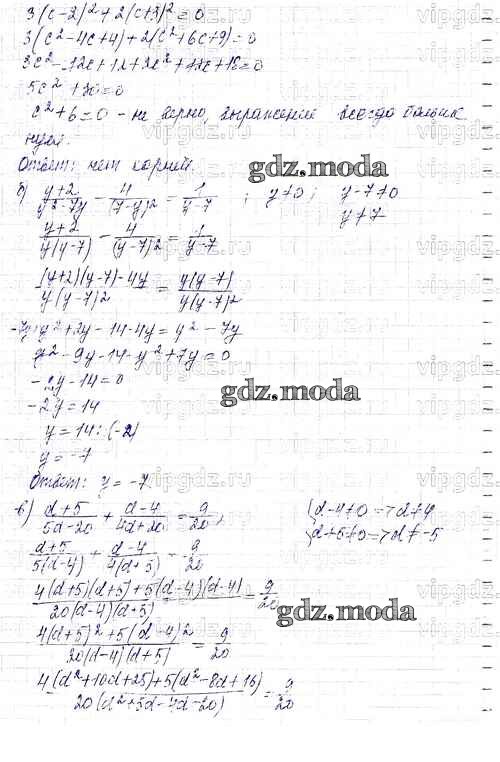 3(c-2)² + 2(c+3)² = 0
3(c²-4c+4)+2(c²+6c+9)=0
3c²-12c+12+2c²+12c+18=0
5c²+30=0
c²+6=0 - не верно, выражение всегда больше
нуля.
Ответ: нет корней.
gdz.moda
б) (y+2)/(y²-7y) - 4/(7-y)² = 1/(y-7) ; y≠0; y-7≠0
y≠7
(y+2)/(y(y-7)) - 4/(y-7)² = 1/(y-7)
((y+2)(y-7)-4y)/(y(y-7)²) = y(y-7)/(y(y-7)²)
-7y+y²+2y-14-4y=y²-7y
y²-9y-14-y²+7y=0
-2y-14=0
gdz.moda
-2y=14
y=14:(-2)
y=-7
Ответ: y=-7.
в) (d+5)/(5d-20) + (d-4)/(4d+20) = 9/20, d-4≠0=>d≠4
d+5≠0=>d≠-5
(d+5)/(5(d-4)) + (d-4)/(4(d+5)) = 9/20
(4(d+5)(d+5)+5(d-4)(d-4))/(20(d-4)(d+5)) = 9/20
gdz.moda
(4(d+5)²+5(d-4)²)/(20(d-4)(d+5)) = 9/20
(4(d²+10d+25)+5(d²-8d+16))/(20(d²+5d-4d-20)) = 9/20